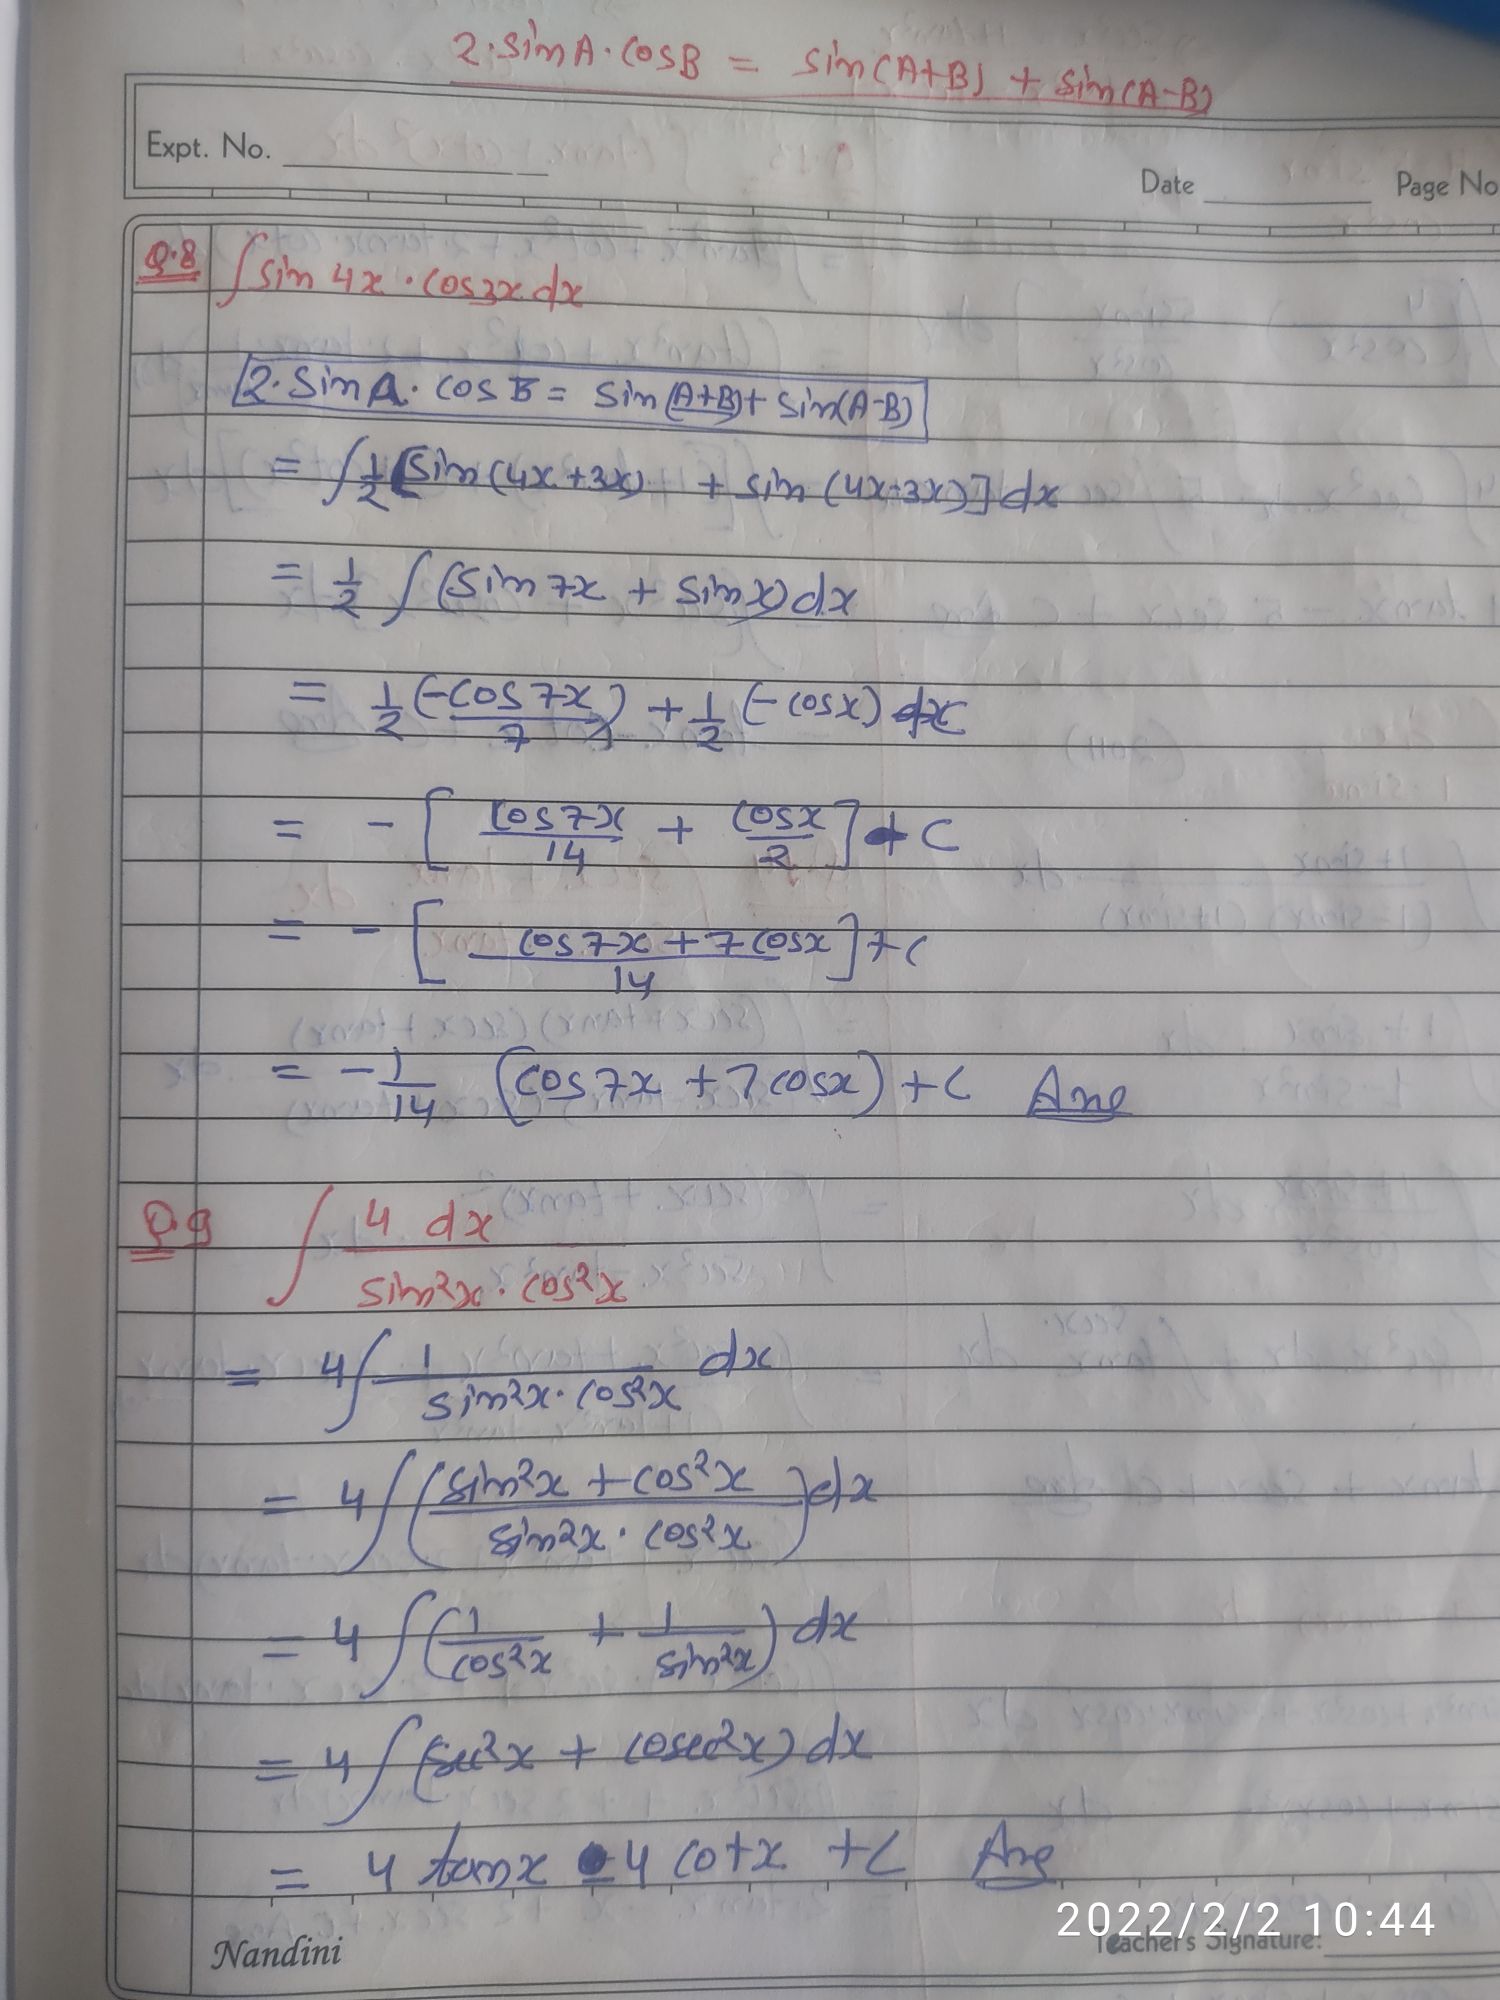 2·sinA·cosB = sin(A+B) + sin(A-B)
Expt. No.
Date Page No
Q.8 ∫sin 4x · cos3x dx
2·sinA·cosB = sin(A+B)+ sin(A-B)
= ∫1/2[sin(4x+3x) + sin(4x-3x)]dx
= 1/2 ∫(sin7x + sinx)dx
= 1/2(-cos7x/7) + 1/2(-cosx) dx
= -[cos7x/14 + cosx/2] + C
= -[(cos7x + 7cosx)/14] + C
= -1/14 (cos7x + 7cosx) + C Ans
Q.9 ∫ 4 dx/(sin²x · cos²x)
= 4∫ 1/(sin²x·cos²x) dx
= 4∫((sin²x + cos²x)/(sin²x · cos²x))dx
= 4∫(1/cos²x + 1/sin²x) dx
= 4∫(sec²x + cosec²x) dx
= 4 tanx - 4 cotx + C Ans
2022/2/2 10:44
Nandini Teacher's Signature: